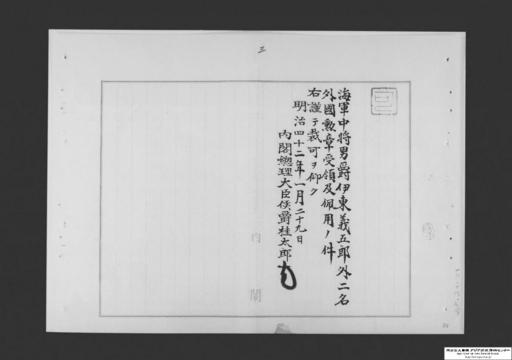 三
海軍中将男爵伊東義五郎外二名
外國勲章受領及佩用ノ件
右謹テ裁可ヲ仰ク
明治四十二年一月二十九日
内閣總理大臣侯爵桂太郎
内閣